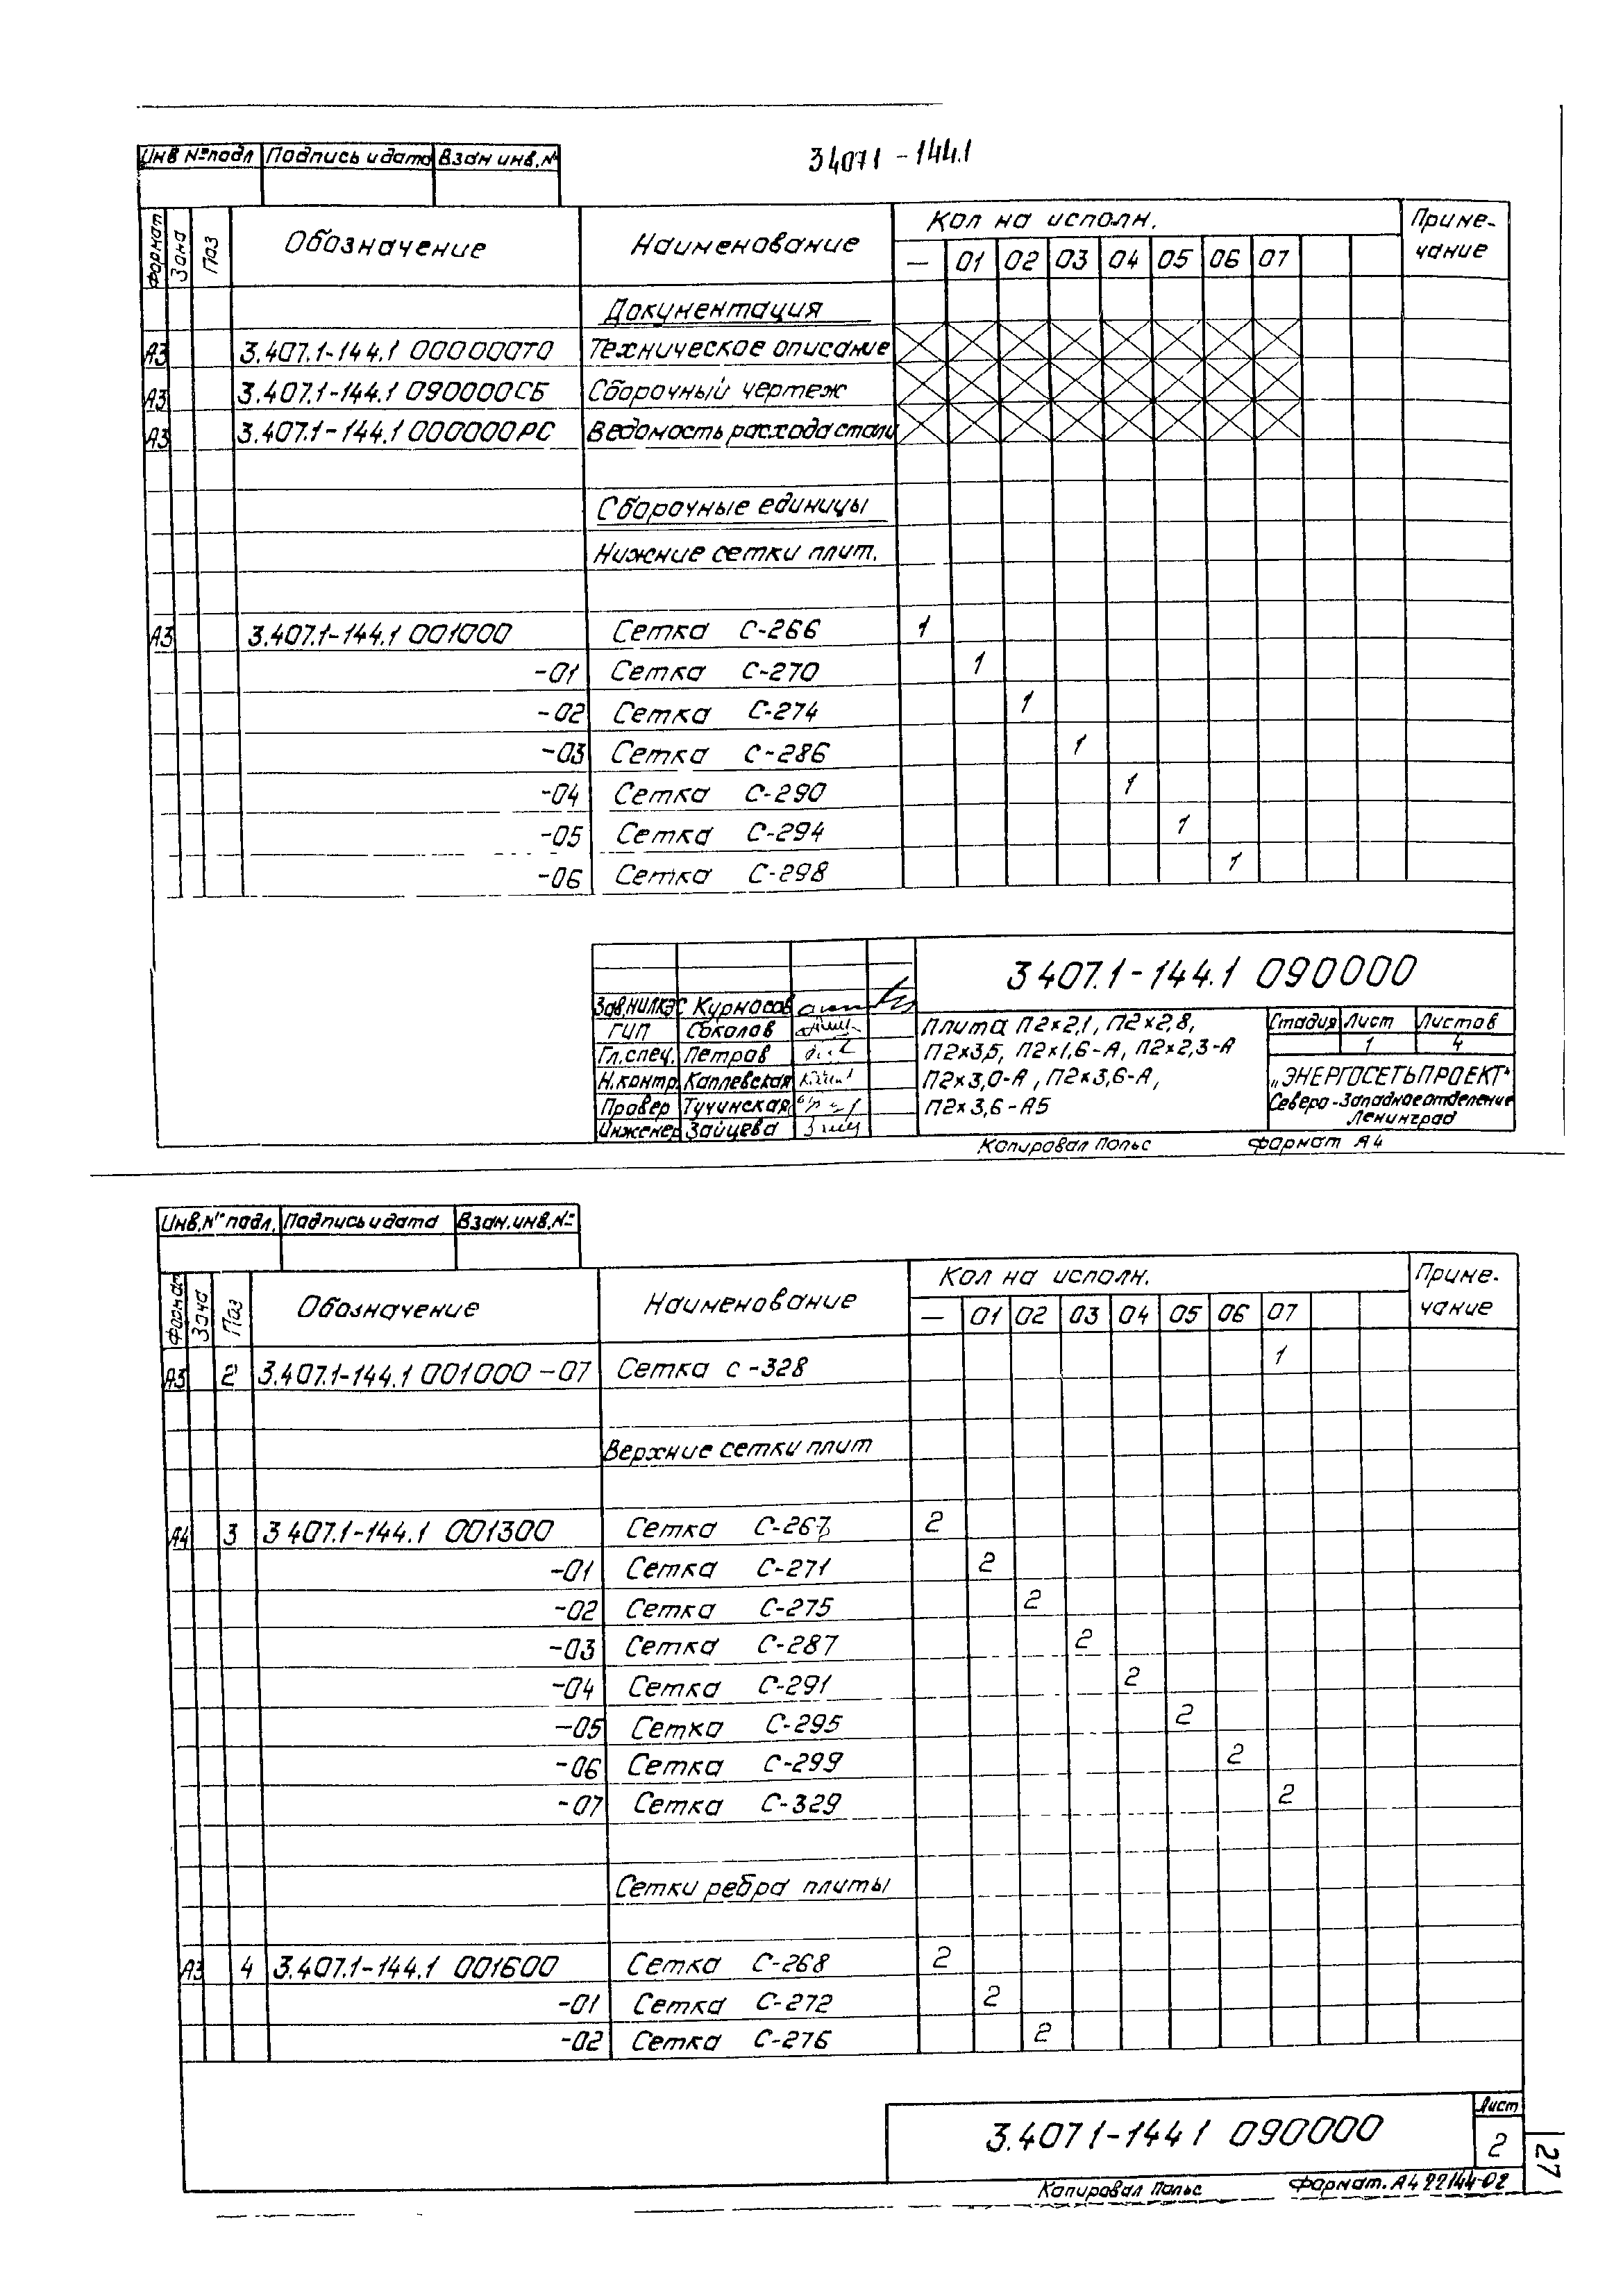 3.407.1-144.1
Инв №подл Подпись и дата Взам инв.№
Формат Зона Поз Обозначение Наименование Кол на исполн. Приме-чание
— 01 02 03 04 05 06 07
Документация
А3 3.407.1-144.1 000000ТО Техническое описание
А3 3.407.1-144.1 090000СБ Сборочный чертеж
А3 3.407.1-144.1 000000РС Ведомость расхода стали
Сборочные единицы
Нижние сетки плит.
А3 3.407.1-144.1 001000 Сетка С-266 1
-01 Сетка С-270 1
-02 Сетка С-274 1
-03 Сетка С-286 1
-04 Сетка С-290 1
-05 Сетка С-294 1
-06 Сетка С-298 1
3 407.1-144.1 090000
Зав.НИЛКЭС Курносов
ГИП Соколов
Гл.спец. Петров
Н.контр. Каплевская
Провер Тучинская
Инженер Зайцева
Плита П2×2,1, П2×2,8,
П2×3,5, П2×1,6-А, П2×2,3-А
П2×3,0-А, П2×3,6-А,
П2×3,6-А5
Стадия Лист Листов
1 4
„ЭНЕРГОСЕТЬПРОЕКТ“
Северо-Западное отделение
Ленинград
Копировал Польс Формат А4
Инв.№ подл. Подпись и дата Взам.инв.№
Формат Зона Поз Обозначение Наименование Кол на исполн. Приме-чание
— 01 02 03 04 05 06 07
А3 2 3.407.1-144.1 001000-07 Сетка с-328 1
Верхние сетки плит
А4 3 3 407.1-144.1 001300 Сетка С-267 2
-01 Сетка С-271 2
-02 Сетка С-275 2
-03 Сетка С-287 2
-04 Сетка С-291 2
-05 Сетка С-295 2
-06 Сетка С-299 2
-07 Сетка С-329 2
Сетки ребра плиты
А3 4 3.407.1-144.1 001600 Сетка С-268 2
-01 Сетка С-272 2
-02 Сетка С-276 2
3.407 1-144 1 090000
Лист
2
Копировал Польс Формат.А4 22144-02
27